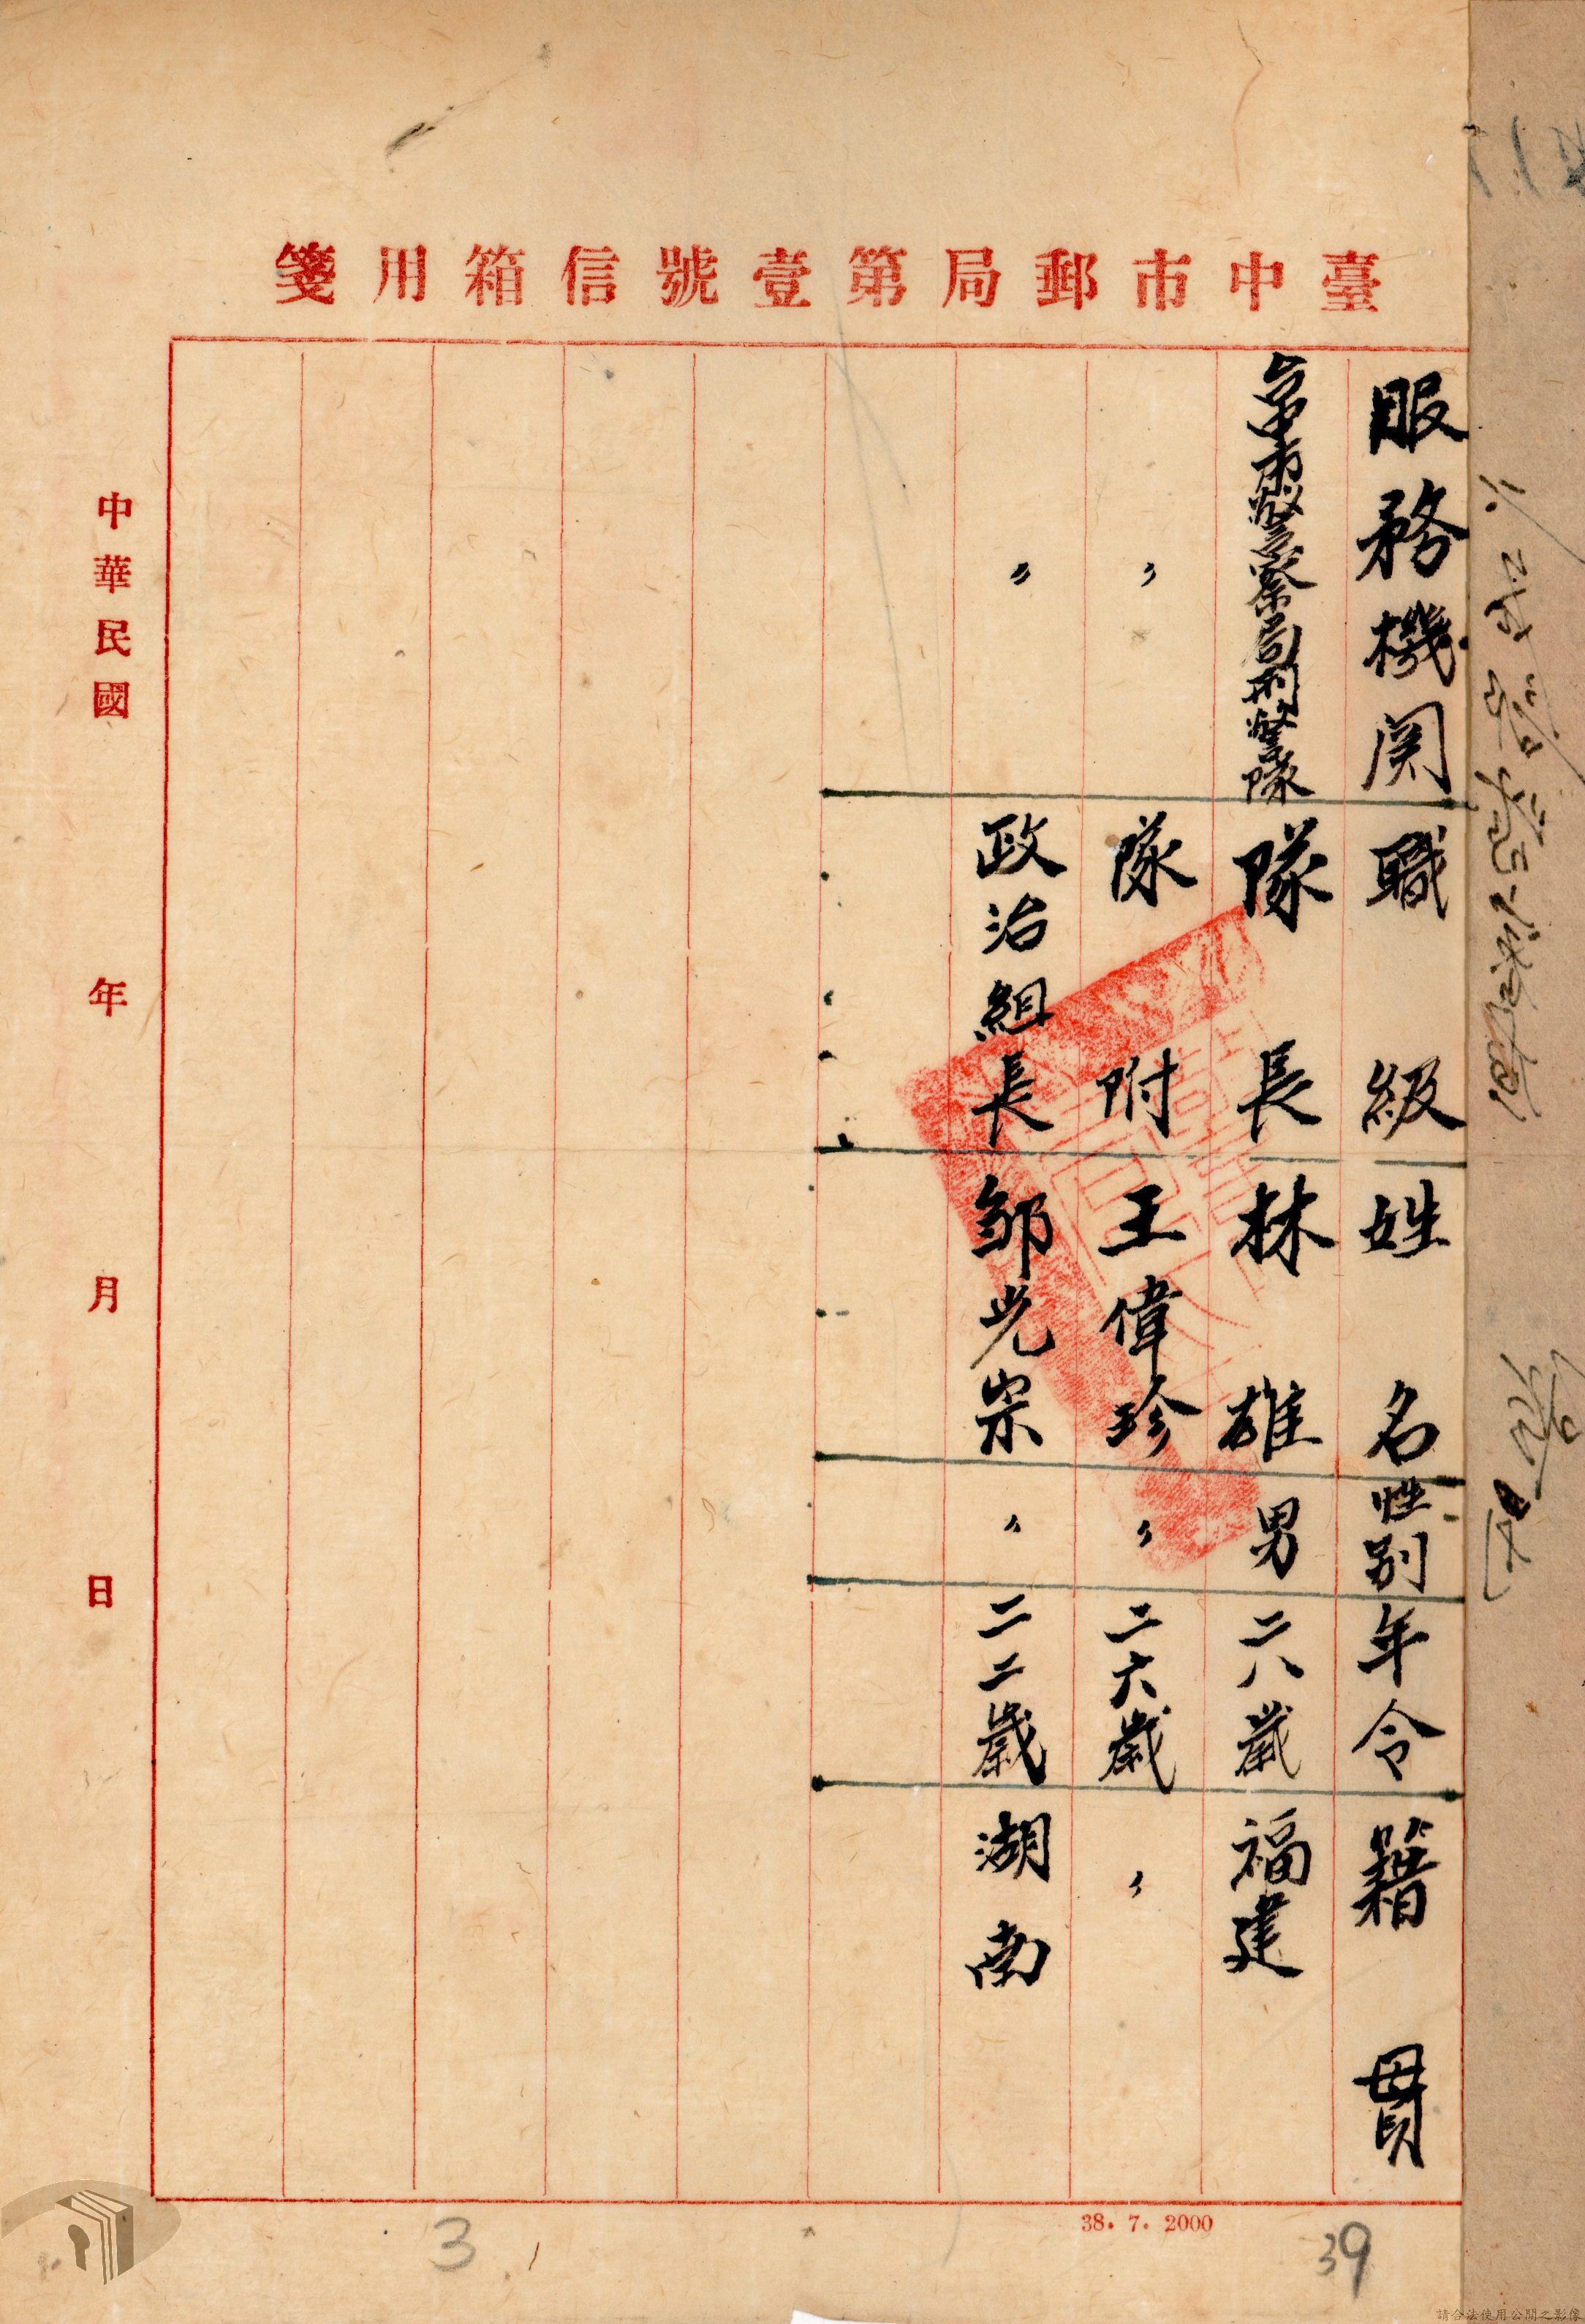 臺中市郵局第壹號信箱用箋
服務機関 職級 姓名 性別 年令 籍貫
台中市警察局刑警隊 隊長 林雄 男 二八歲 福建
〃 隊附 王偉珍 〃 二六歲 〃
〃 政治組長 鄒光宗 〃 二二歲 湖南
中華民國 年 月 日
38. 7. 2000
39
3
請合法使用公開之影像